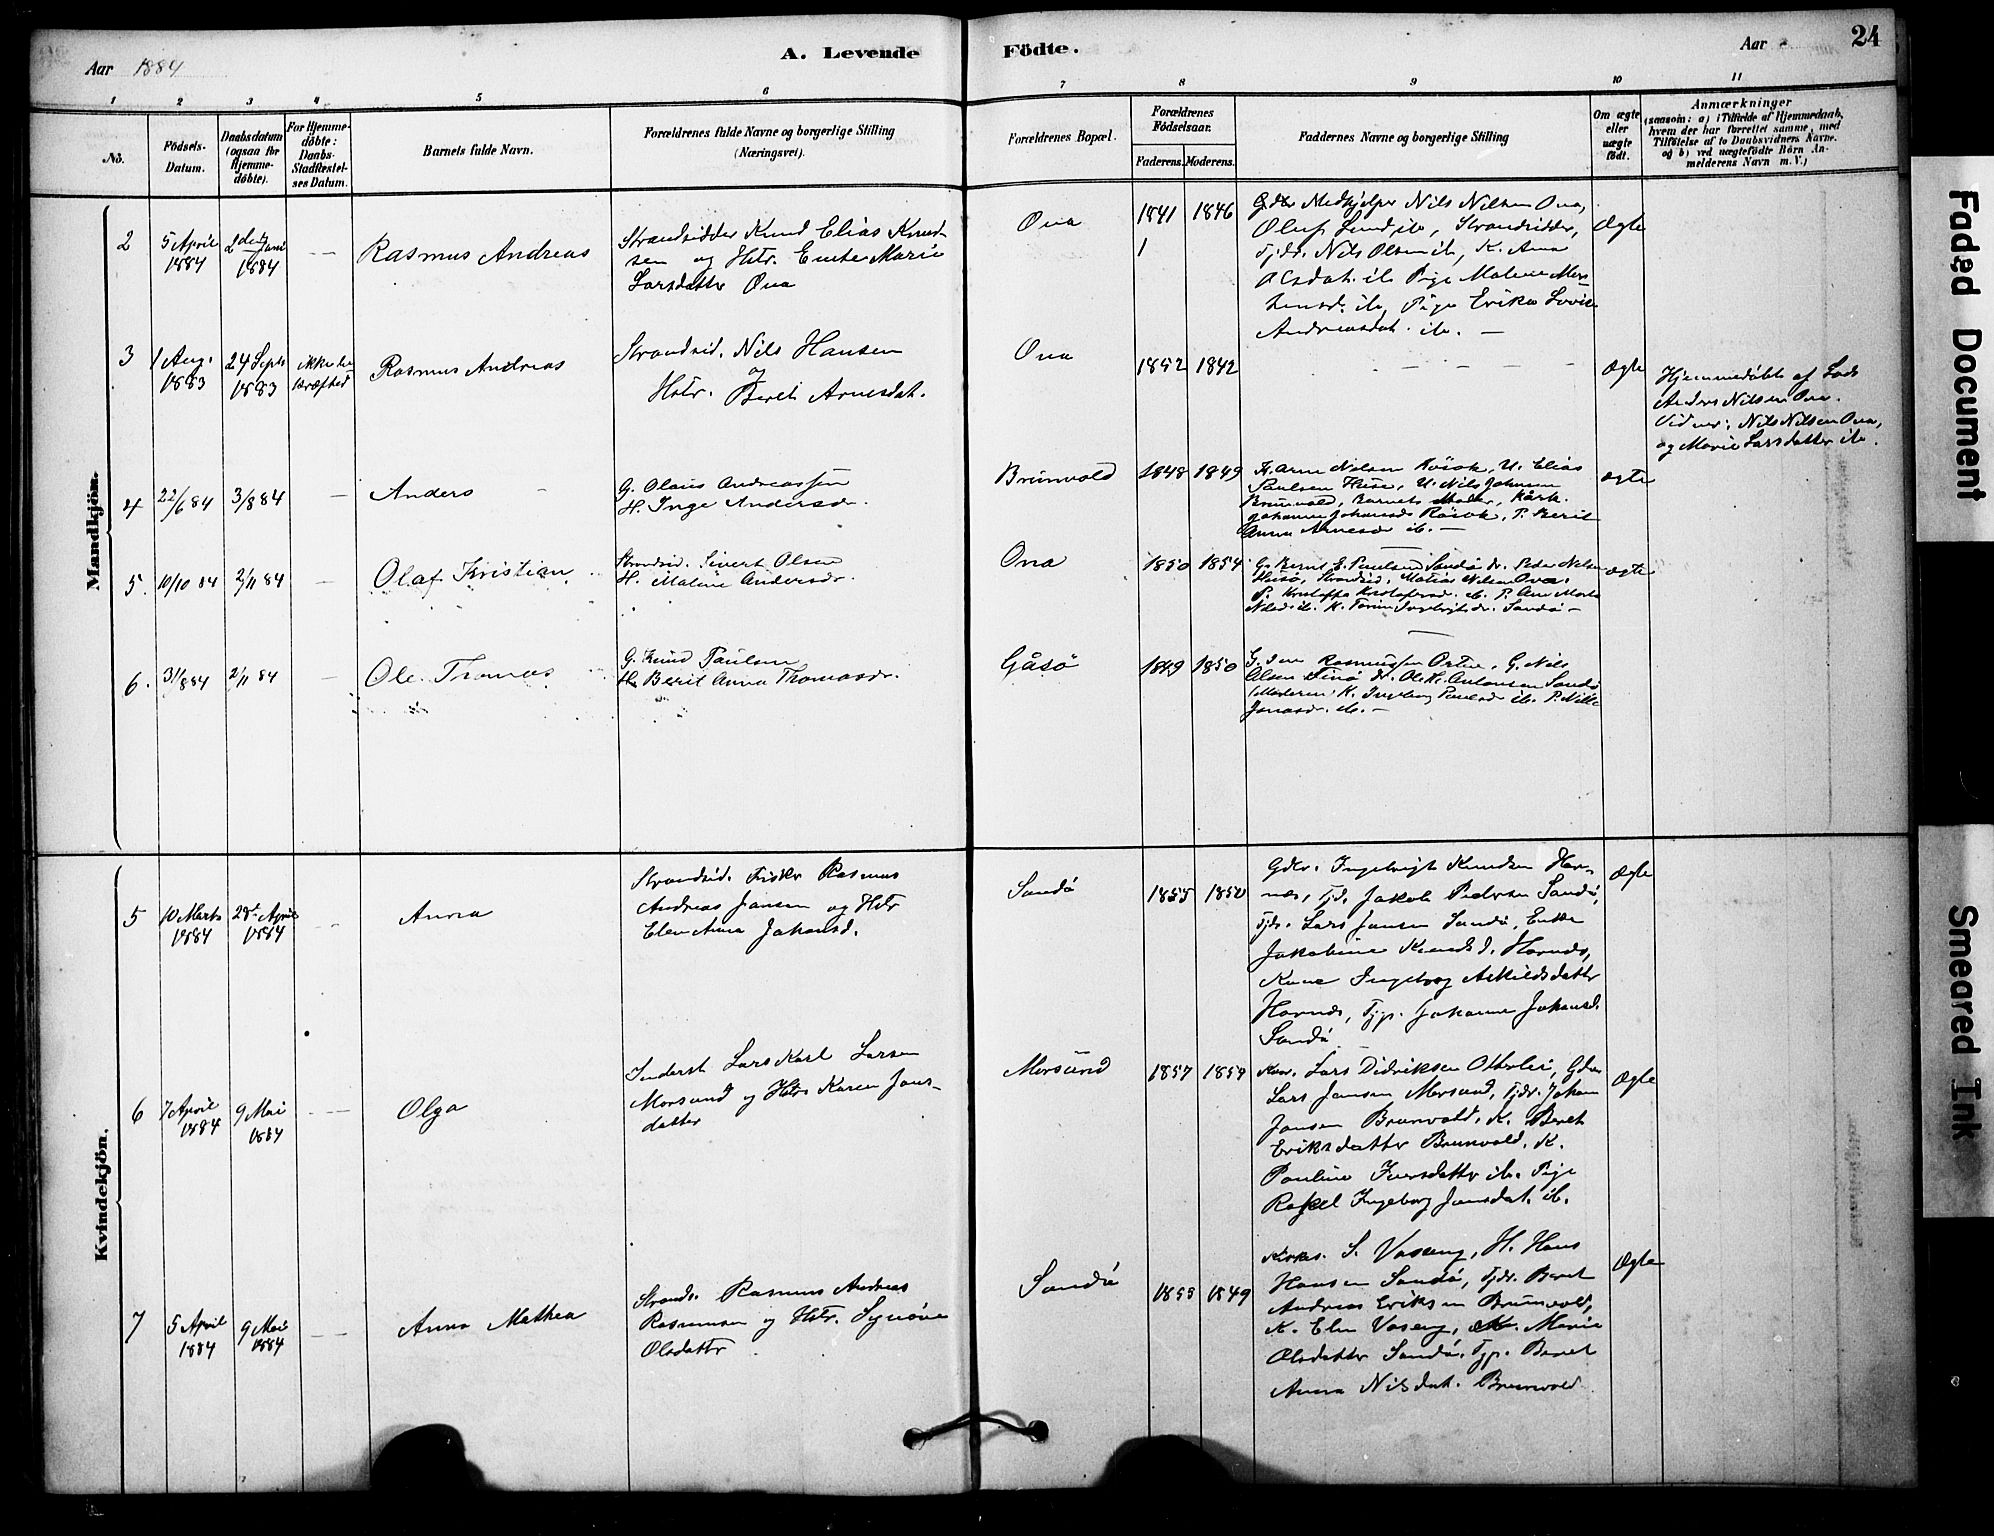 Aar 1884
A. Levende
Födte.
Aar
24
1
2
3
4
5
6
7
8
9
10
11
No.
Födsels-
Datum.
Daabsdatum
(ogsaa for
Hjemme-
døbte).
For Hjemme-
døbte:
Daabs-
Stadfæstel-
ses Datum.
Barnets fulde Navn.
Forældrenes fulde Navne og borgerlige Stilling
(Næringsvei).
Forældrenes Bopæl.
Forældrenes
Födselsaar.
Faderens.
Moderens.
Faddernes Navne og borgerlige Stilling
Om ægte
eller
uægte
født.
Anmærkninger
(saasom: a) i Tilfælde af Hjemmedaab,
hvem der har forrettet samme, med
Tilføielse af to Daabsvidners Navne.
og b) ved uægtefödte Börn An-
melderens Navn m.V.)
Mandkjön.
2
5 April
1884
2den Juni
1884
Rasmus Andreas
Strandsidder Knud Elias Knud-
sen og Hstr. Marie
Larsdatter Ona
Ona
1841
1846
1
Medhjelper Nils Nilsen Ona,
Oluf ib, Strandsidder,
Tjdr. Nils Olsen ib, K. Ana
Olsdat. ib. Pige Malene
ib, Pige Erika Lovise
Andreasdat. ib.
Ægte
3
1 Aug.
1883
24 Septr
1883
ikke be-
kræftet
Rasmus Andreas
Strandsid. Nils Hansen
og
Hstr. Berit Arnesdat.
Ona
1852
1842
Ægte
Hjemmedøbt af Lods
Anders Nilsen Ona.
Vidner: Nils Nilsen Ona,
og Marie Larsdatter ib.
4
22/6 84
3/8 84
Anders
G. Olaus Andreassen
H. Inge Andersdr.
Brunvold
1848
1849
K. Arne Nilsen Røsok, U. Elias
Paulsen Huse, U. Nils Johnsen
Brunvold, Barnets Moder,
Johanne Røsok, P. Berit
Anna Arnesdr ib.
ægte
5.
10/10 84
2/11 84
Olaf Kristian
Strandsid. Sivert Olsen
H. Maline Andersdr.
Ona
1850
1854
G. Bernt E. Paulsen Sandø Peder Nilsen
Husø, Strandsid. Matias Nilsen Ona.
P. ib. P. Ane Marta
ib. K. Sandø
ægte
6.
31/8 84
2/11 84
Ole Thomas
G. Knud Paulsen
H. Berit Anna Thomasdr.
Gåsø
1849
1850
G. Rasmussen G. Nils
Olsen Ole Sandø
(Moderen) K. Ingeborg Paulsdr ib. P.
ib.
Kvindekjön.
5
10 Marts
1884
April
1884
Anna
Strandsid. Fisker Rasmus
Andreas Jansen og Hstr
Elen Anna Johansd.
Sandø
1855
1850
Gdbr. Ingebrigt Knudsen Har-
nes, Tjd. Jakob Pedersen Sandø,
Tjdr. Lars Jansen Sandø, Enke
Jakobine Knudsd. Harnæs,
Kone Ingeborg Askildsdatter
Harnæs, Tjp. Johanne Johansd.
Sandø
Ægte
6
7 April
1884
9 Mai
1884
Olga
Inderst Lars Karl Larsen
Morsund og Hstr Karen Jans-
datter
Morsund
1857
1859
Lars Didriksen Otterlei,
Lars Jansen Morsund, Tjdr. Johan
Jansen Brunvold, K. Beret
Eriksdatter Brunvold, K.
Pauline Iversdatter ib. Pige
Rakel Ingeborg Jansdat. ib.
Ægte
7
5 April
1884
9 Mai
1884
Anna Mathea
Strands. Rasmus Andreas
Rasmussen og Hstr. Synøve
Olsdatter
Sandø
1853
1849
S. Vaseng, H. Hans
Hansen Sandø, Tjdr. Beret
Andreas Eriksen Brunvold,
K. Elen Vaseng, K. Marie
Olsdatter Sandø, Tjp. Beret
Anna Nilsdat. Brunvold
Ægte
Faded Document
Smeared Ink